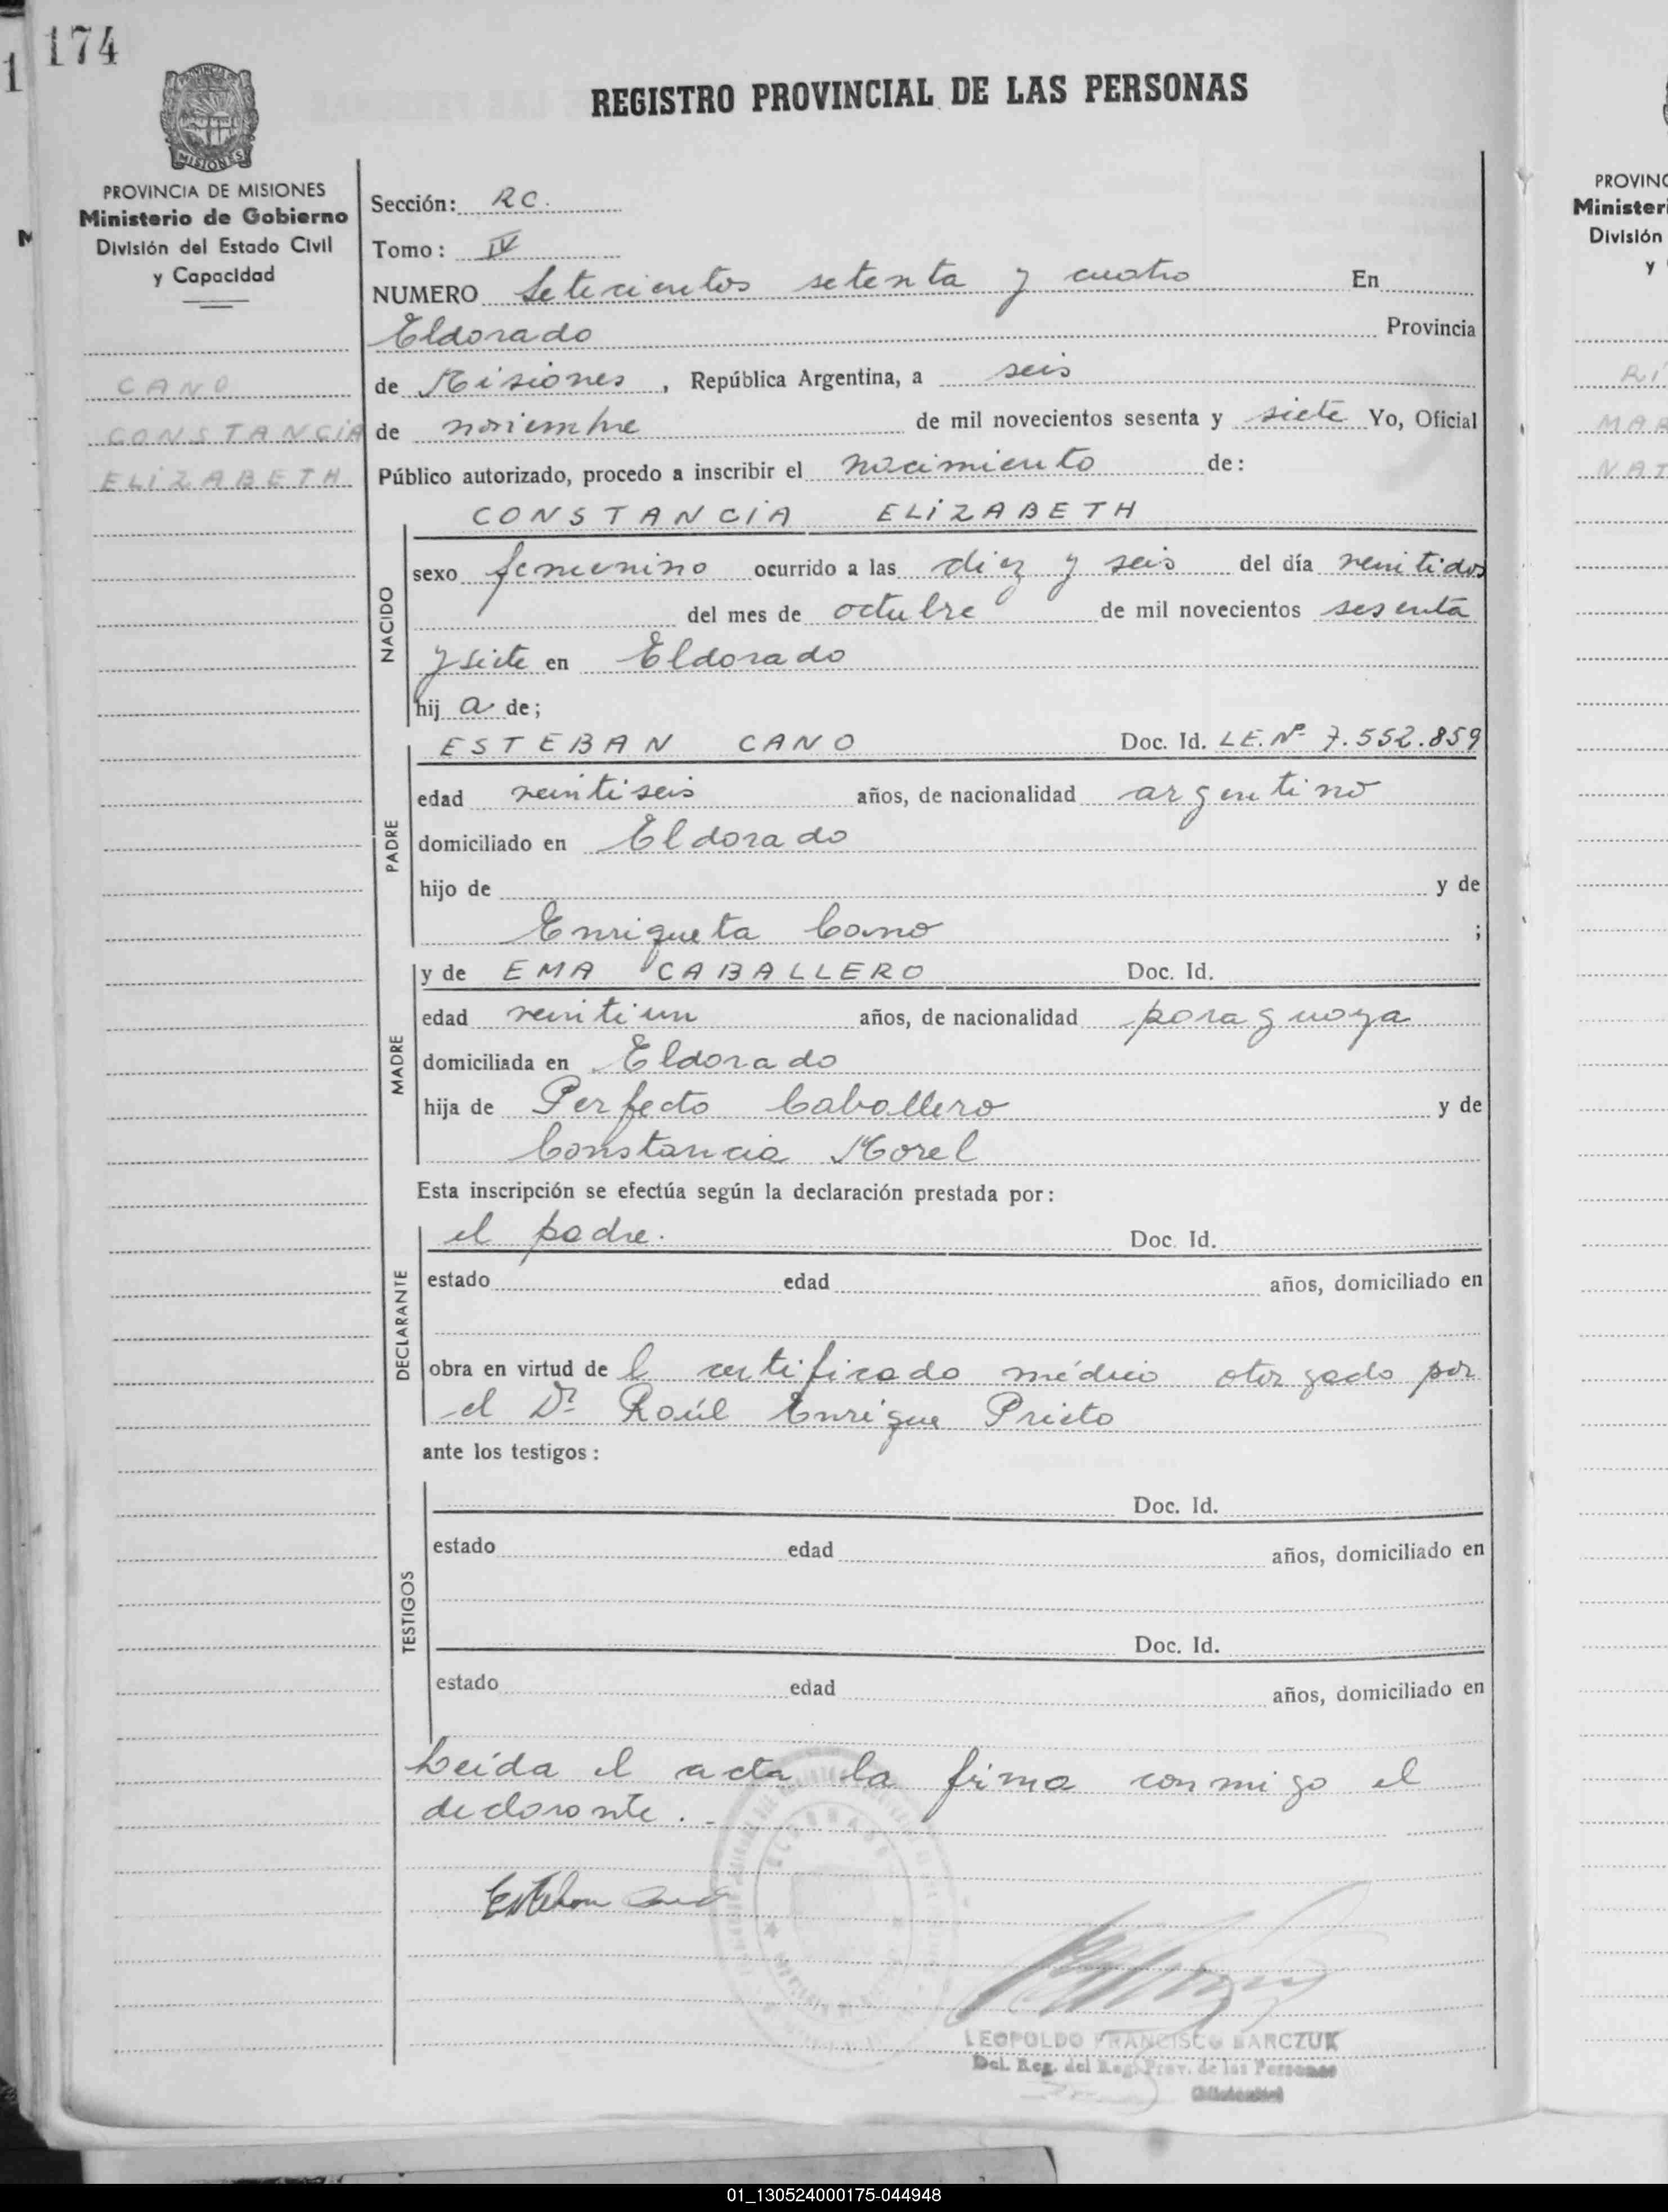 174
REGISTRO PROVINCIAL DE LAS PERSONAS
MISIONES
PROVINCIA DE MISIONES
Ministerio de Gobierno
División del Estado Civil
y Capacidad
CANO
CONSTANCIA
ELIZABETH
Sección: RC.
Tomo: IV
NUMERO Setecientos setenta y cuatro En
Eldorado Provincia
de Misiones, República Argentina, a seis
de noviembre de mil novecientos sesenta y siete Yo, Oficial
Público autorizado, procedo a inscribir el nacimiento de:
CONSTANCIA ELIZABETH
NACIDO
sexo femenino ocurrido a las diez y seis del día veintidos
del mes de octubre de mil novecientos sesenta
y siete en Eldorado
hij a de;
PADRE
ESTEBAN CANO Doc. Id. L.E. Nº 7.552.859
edad veintiseis años, de nacionalidad argentino
domiciliado en Eldorado
hijo de y de
Enriqueta Cano ;
MADRE
y de EMA CABALLERO Doc. Id.
edad veintiun años, de nacionalidad paraguaya
domiciliada en Eldorado
hija de Perfecto Caballero y de
Constancia Morel
Esta inscripción se efectúa según la declaración prestada por:
DECLARANTE
el padre. Doc. Id.
estado edad años, domiciliado en
obra en virtud de l certificado médico otorgado por
el Dr. Raúl Enrique Prieto
ante los testigos:
TESTIGOS
Doc. Id.
estado edad años, domiciliado en
Doc. Id.
estado edad años, domiciliado en
Leída el acta la firma conmigo el
declarante.
Esteban Cano
LEOPOLDO FRANCISCO BARCZUK
Del. Reg. del Reg. Prov. de las Personas
PROVINC
Ministeri
División
y
RI
MAR
NAT
01_130524000175-044948